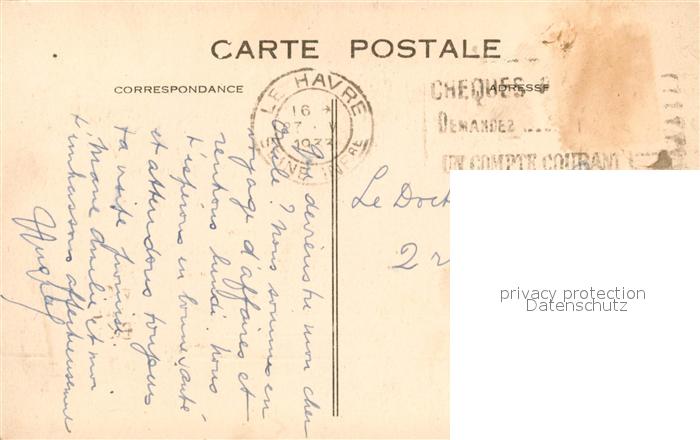 CARTE POSTALE
CORRESPONDANCE
ADRESSE
LE HAVRE
16
1933
SEINE INFRE
CHEQUES
DEMANDEZ
UN COMPTE COURANT
Que deviens tu mon cher
Émile ? Nous sommes en
voyage d'affaires et
rentrons lundi. Nous
t'espérons en bonne santé
et attendons toujours
ta visite promise.
Mame Amélie et moi
t'embrassons affectueusement
Le Doct
22
privacy protection
Datenschutz